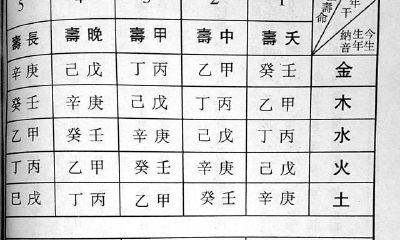 年干
壽命
今生
生年
納音
1 2 3 4 5
夭壽 中壽 甲壽 晚壽 長壽
金 壬癸 甲乙 丙丁 戊己 庚辛
木 甲乙 丙丁 戊己 庚辛 壬癸
水 丙丁 戊己 庚辛 壬癸 甲乙
火 戊己 庚辛 壬癸 甲乙 丙丁
土 庚辛 壬癸 甲乙 丙丁 戌巳